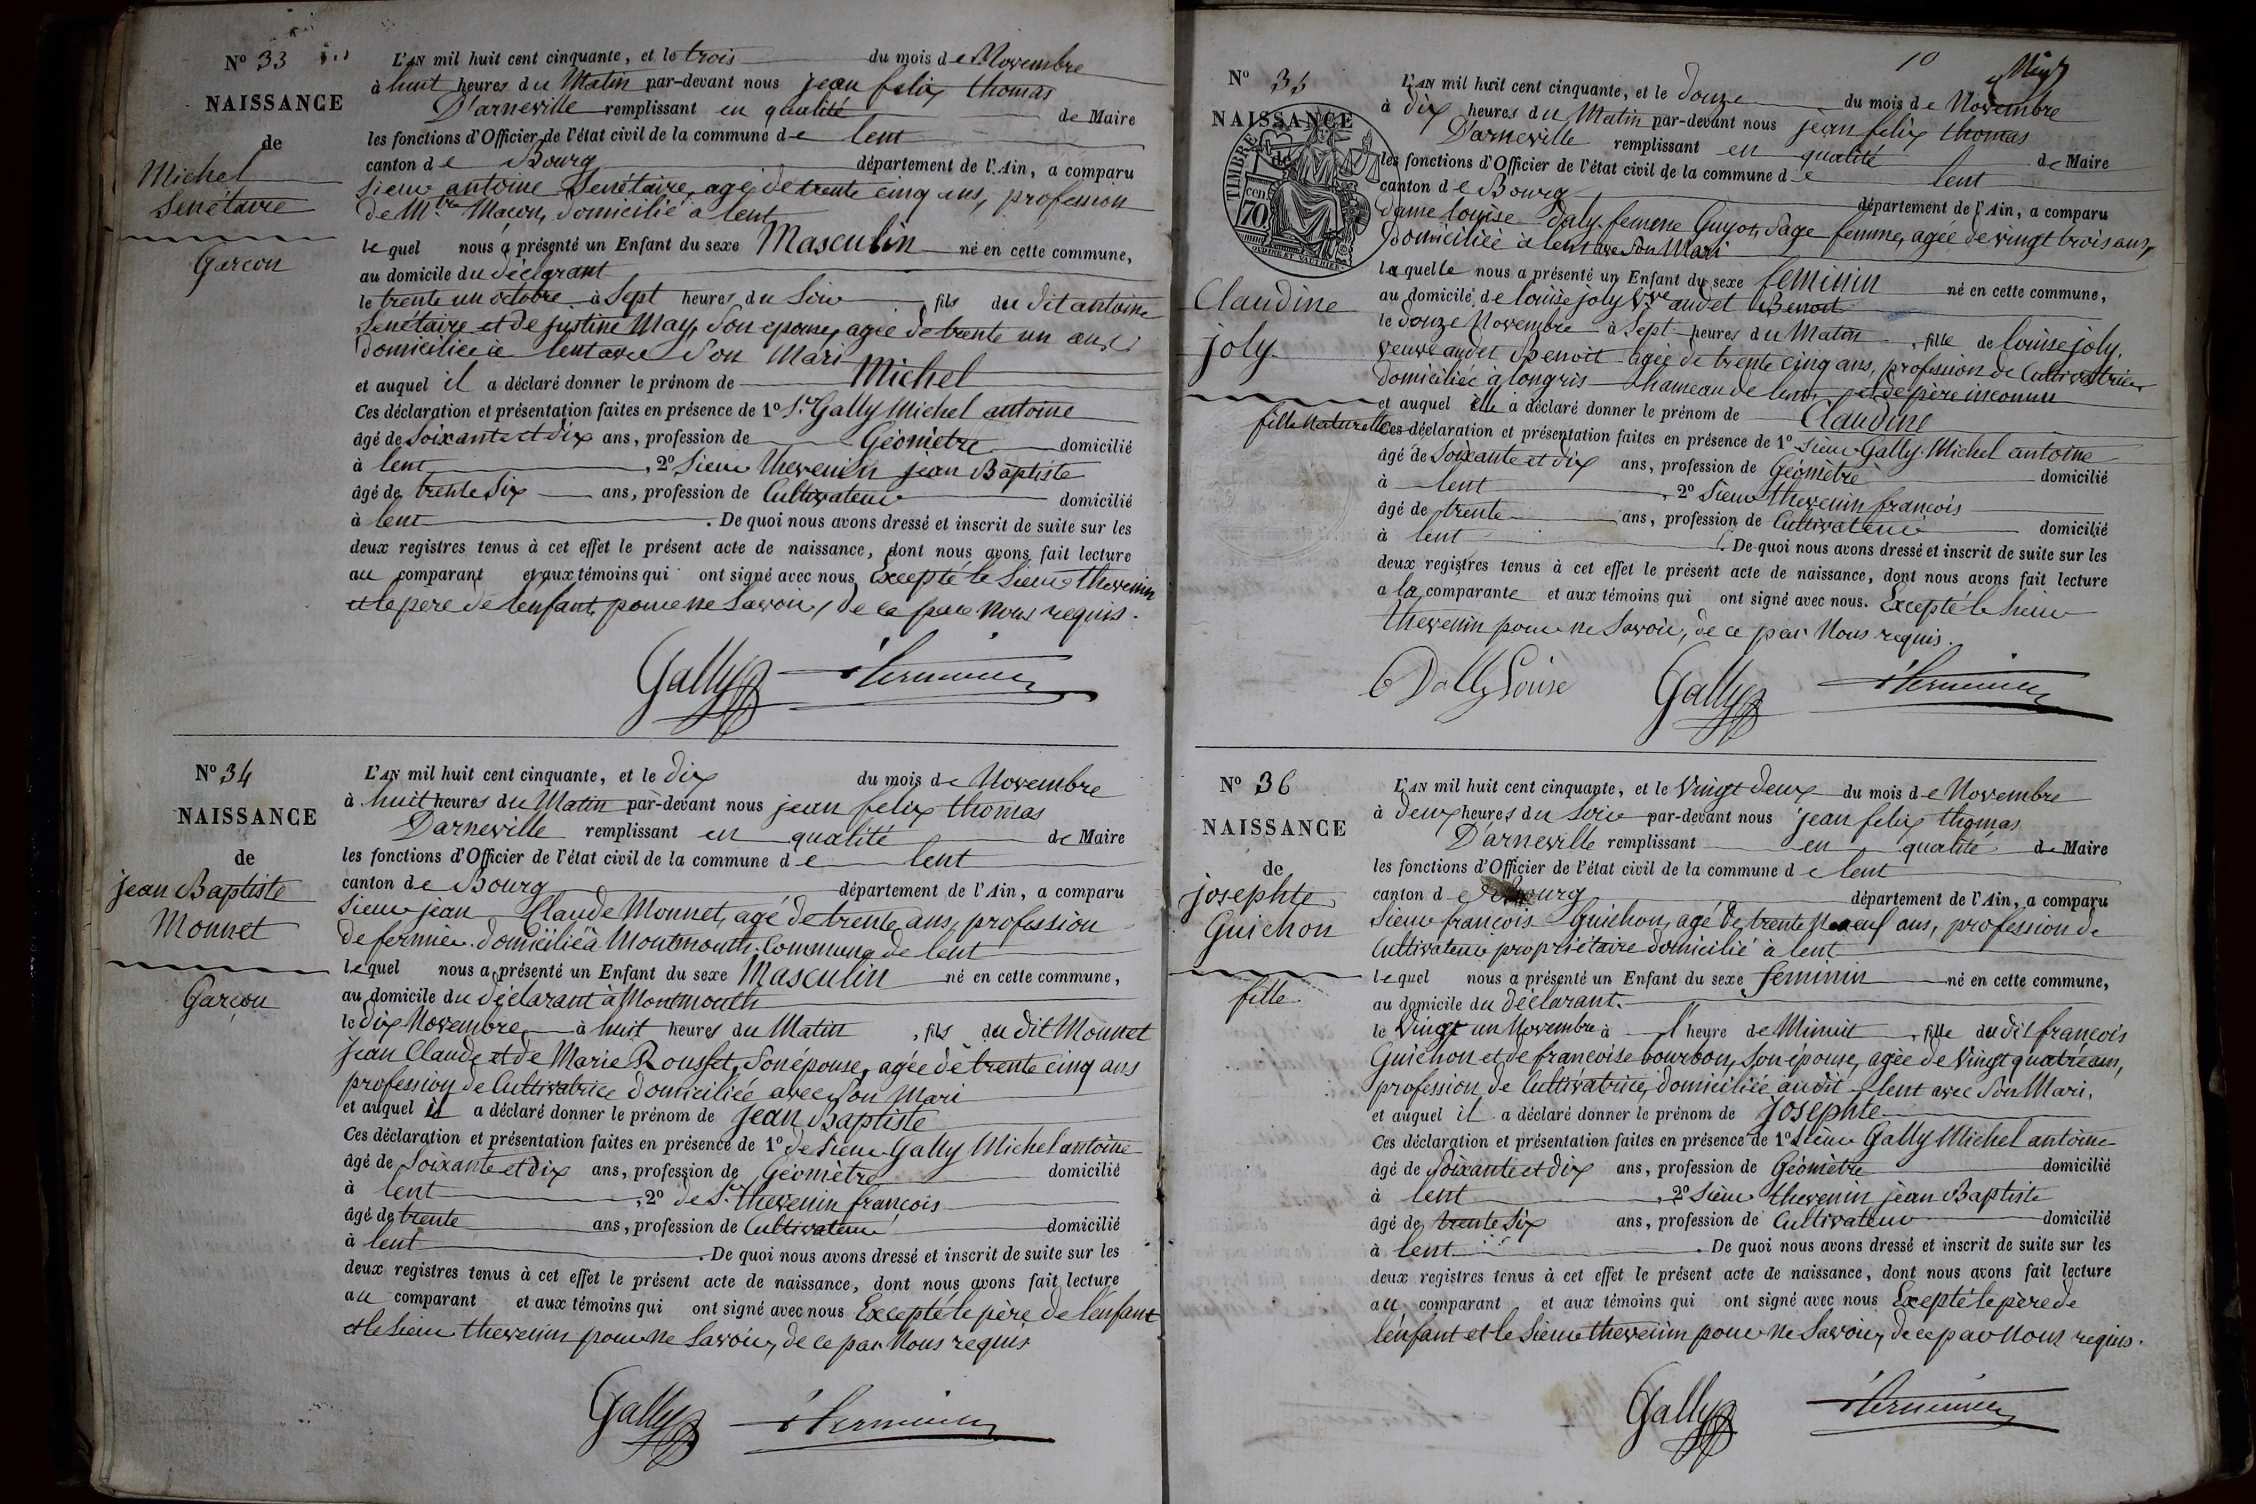 N° 33
NAISSANCE
de
Michel
Senétaire
Garçon
L'AN mil huit cent cinquante, et le trois du mois de Novembre
à huit heures du Matin par-devant nous jean felix thomas
D'arneville remplissant en qualité de Maire
les fonctions d'Officier de l'état civil de la commune de lent
canton de Bourg département de l'Ain, a comparu
Sieur antoine Senétaire, agé de trente cinq ans, profession
de M.tre Maçon, domicilié a lent
lequel nous a présenté un Enfant du sexe Masculin né en cette commune,
au domicile du déclarant
le trente un octobre à Sept heures du Soir, fils du dit antoine
Senétaire et de justine May, Son epouse, agée de trente un ans
domiciliée à lent avec Son Mari
et auquel il a déclaré donner le prénom de Michel
Ces déclaration et présentation faites en présence de 1° S.r Gally Michel antoine
âgé de Soixante et dix ans, profession de Géomètre domicilié
à lent, 2° Sieur thevenin jean Baptiste
âgé de trente Six ans, profession de Cultivateur domicilié
à lent. De quoi nous avons dressé et inscrit de suite sur les
deux registres tenus à cet effet le présent acte de naissance, dont nous avons fait lecture
au comparant et aux témoins qui ont signé avec nous Excepté le Sieur thevenin
et le père de l'enfant, pour ne Savoir, de ce par Nous requis.
Gally
N° 34
NAISSANCE
de
jean Baptiste
Monnet
Garçon
L'AN mil huit cent cinquante, et le dix du mois de Novembre
à huit heures du Matin par-devant nous jean felix thomas
D'arneville remplissant en qualité de Maire
les fonctions d'Officier de l'état civil de la commune de lent
canton de Bourg département de l'Ain, a comparu
Sieur jean Claude Monnet, agé de trente ans, profession
de fermier. domicilié à Montmouth. Commune de lent
lequel nous a présenté un Enfant du sexe Masculin né en cette commune,
au domicile du déclarant à Montmouth
le dix Novembre à huit heures du Matin, fils du dit Monnet
Jean Claude et de Marie Rousset, Son épouse, agée de trente cinq ans
profession de Cultivatrice domiciliée avec Son Mari
et auquel il a déclaré donner le prénom de Jean Baptiste
Ces déclaration et présentation faites en présence de 1° de Sieur Gally Michel antoine
âgé de Soixante et dix ans, profession de Géomètre domicilié
à lent, 2° de S.r thevenin françois
âgé de trente ans, profession de Cultivateur domicilié
à lent. De quoi nous avons dressé et inscrit de suite sur les
deux registres tenus à cet effet le présent acte de naissance, dont nous avons fait lecture
au comparant et aux témoins qui ont signé avec nous Excepté le père de l'enfant
et le Sieur thevenin pour ne Savoir, de ce par Nous requis
Gally
10
N° 35
NAISSANCE
de
TIMBRE
70
Claudine
joly
fille Naturelle
L'AN mil huit cent cinquante, et le douze du mois de Novembre
à dix heures du Matin par-devant nous jean felix thomas
D'arneville remplissant en qualité de Maire
les fonctions d'Officier de l'état civil de la commune de lent
canton de Bourg département de l'Ain, a comparu
dame louise Daly femme Guyot, Sage femme, agée de vingt trois ans,
domiciliée à lent avec Son Mari
laquelle nous a présenté un Enfant du sexe feminin né en cette commune,
au domicile de louise joly V.ve audet Benoit
le douze Novembre à Sept heures du Matin, fille de louise joly,
veuve audet Benoit agée de trente cinq ans, profession de Cultivatrice
domiciliée à longris hameau de lent, et de père inconnu
et auquel elle a déclaré donner le prénom de Claudine
Ces déclaration et présentation faites en présence de 1° Sieur Gally Michel antoine
âgé de Soixante et dix ans, profession de Géomètre domicilié
à lent, 2° Sieur thevenin françois
âgé de trente ans, profession de Cultivateur domicilié
à lent. De quoi nous avons dressé et inscrit de suite sur les
deux registres tenus à cet effet le présent acte de naissance, dont nous avons fait lecture
a la comparante et aux témoins qui ont signé avec nous. Excepté le Sieur
thevenin pour ne Savoir, de ce par Nous requis.
Dally Louise Gally
N° 36
NAISSANCE
de
josephte
Guichon
fille
L'AN mil huit cent cinquante, et le Vingt deux du mois de Novembre
à deux heures du Soir par-devant nous jean felix thomas
D'arneville remplissant en qualité de Maire
les fonctions d'Officier de l'état civil de la commune de lent
canton de Bourg département de l'Ain, a comparu
Sieur françois Guichon, agé de trente Neuf ans, profession de
Cultivateur propriétaire domicilié à lent
lequel nous a présenté un Enfant du sexe feminin né en cette commune,
au domicile du déclarant.
le Vingt un Novembre à l'heure de Minuit, fille du dit françois
Guichon et de françoise bourbon, Son épouse, agée de Vingt quatre ans,
profession de Cultivatrice, domiciliée audit lent avec Son Mari,
et auquel il a déclaré donner le prénom de josephte
Ces déclaration et présentation faites en présence de 1° Sieur Gally Michel antoine
âgé de Soixante et dix ans, profession de Géomètre domicilié
à lent, 2° Sieur thevenin jean Baptiste
âgé de trente Six ans, profession de Cultivateur domicilié
à lent. De quoi nous avons dressé et inscrit de suite sur les
deux registres tenus à cet effet le présent acte de naissance, dont nous avons fait lecture
au comparant et aux témoins qui ont signé avec nous Excepté le père de
l'enfant et le Sieur thevenin pour ne Savoir, de ce par Nous requis.
Gally